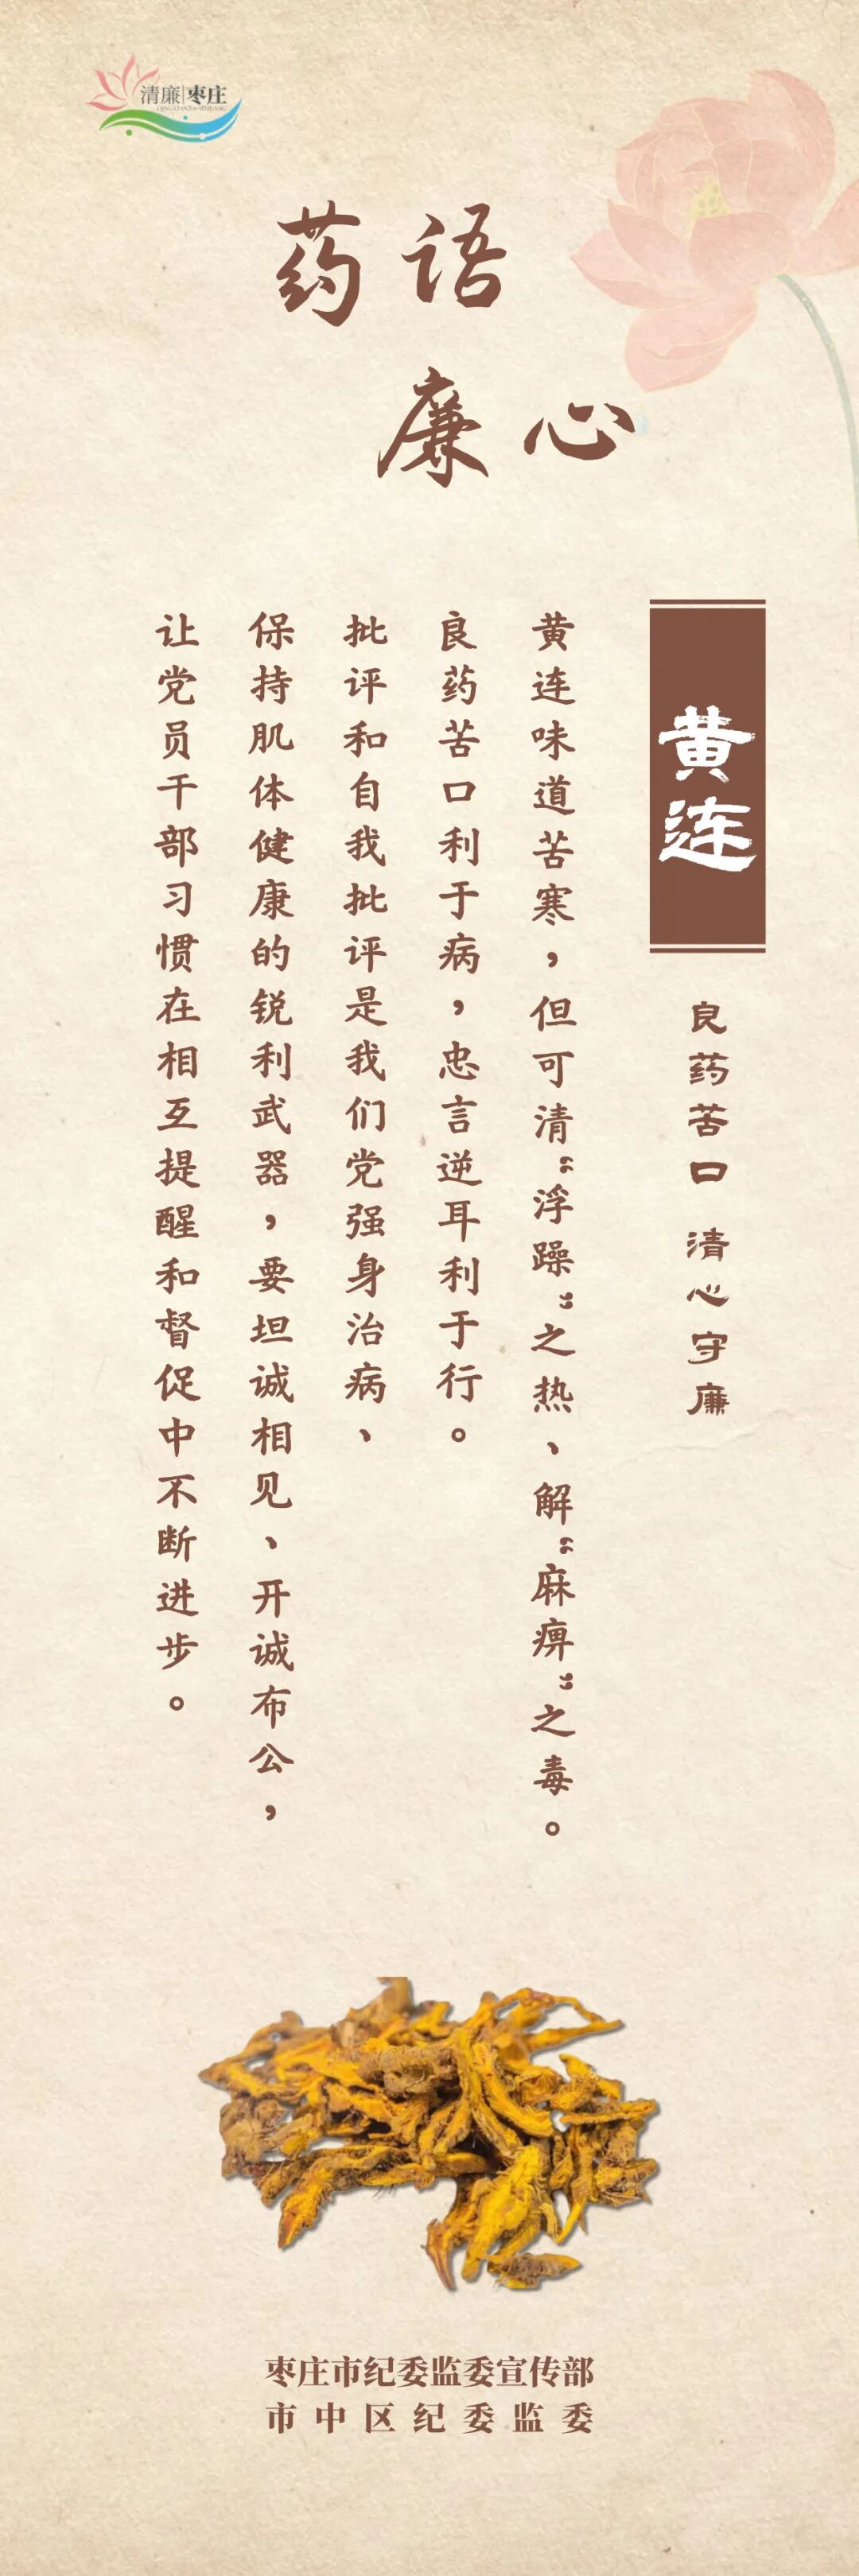 清廉|枣庄
药语
廉心
黄连
良药苦口 清心守廉
黄连味道苦寒，但可清“浮躁”之热、解“麻痹”之毒。
良药苦口利于病，忠言逆耳利于行。
批评和自我批评是我们党强身治病、
保持肌体健康的锐利武器，要坦诚相见、开诚布公，
让党员干部习惯在相互提醒和督促中不断进步。
枣庄市纪委监委宣传部
市中区纪委监委